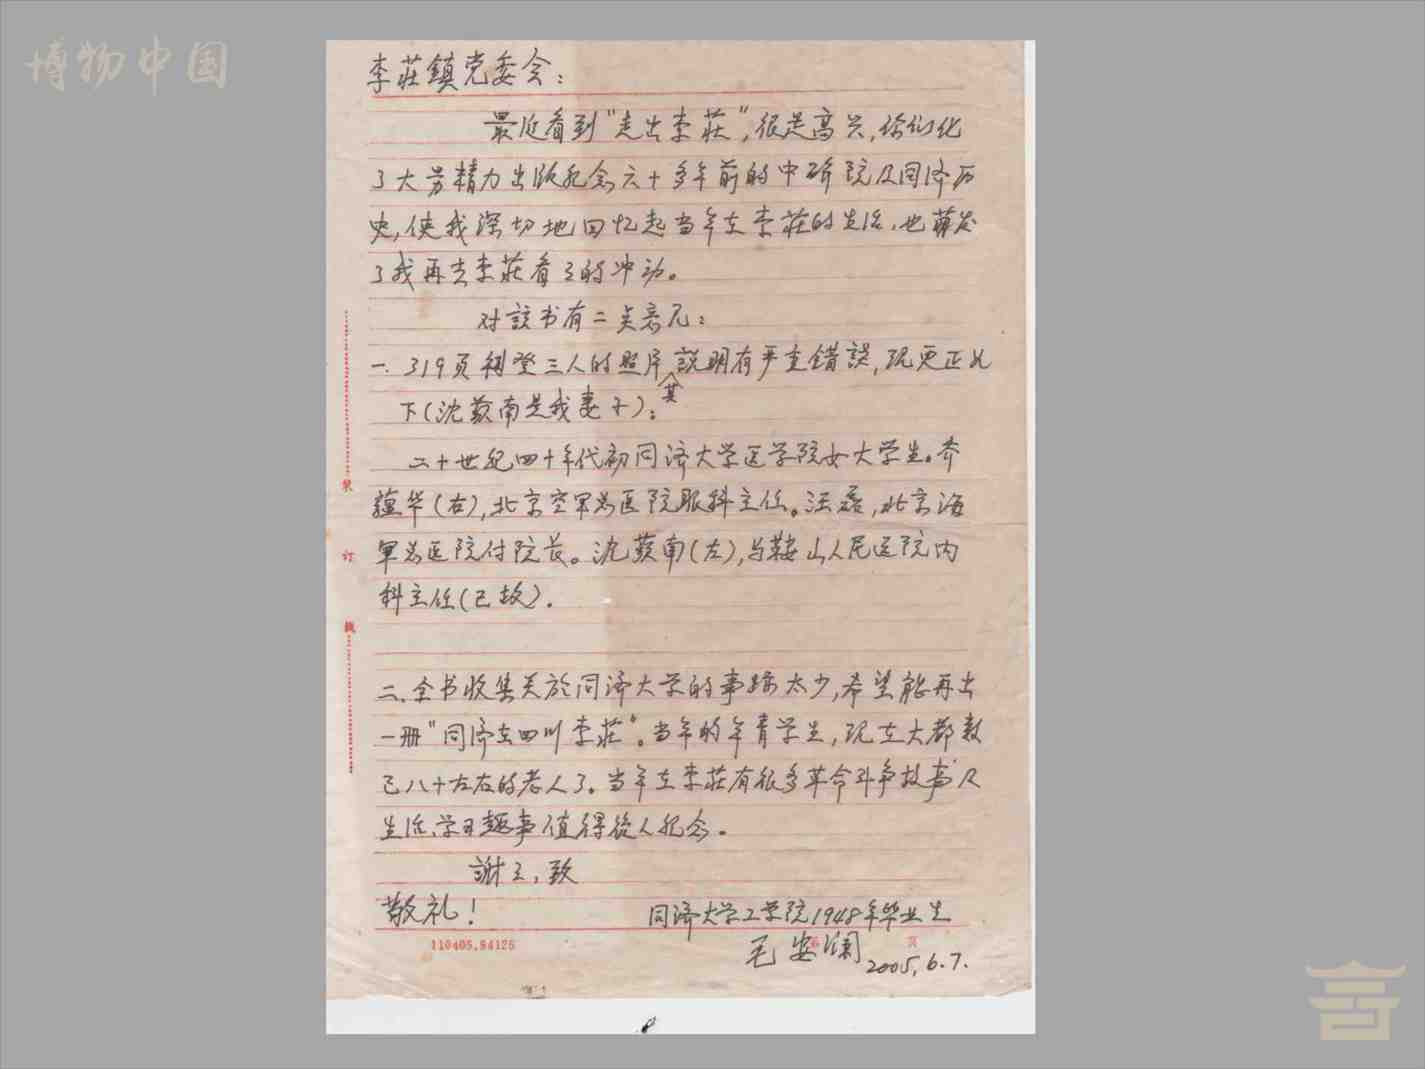 博物中国
李莊鎮党委会：
最近看到“走出李莊”，很是高兴，你们化
了大劳精力出版纪念六十多年前的中研院及同济历
史，使我深切地回忆起当年在李莊的生活，也萌发
了我再去李莊看看的冲动。
对該书有二点意见：
一. 319页刊登三人的照片其説明有严重错误，现更正如
下（沈蘋南是我妻子）：
二十世纪四十年代初同济大学医学院女大学生。乔
蕴华（右），北京空军总医院眼科主任。汪磊，北京海
軍总医院付院长。沈蘋南（左），马鞍山人民医院内
科主任（已故）.
二、全书收集关於同济大学的事跡太少，希望能再出
一册“同济在四川李莊”。当年的年青学生，现在大都数
已八十左右的老人了。当年在李莊有很多革命斗争故事及
生活、学习趣事值得後人纪念。
謝之，致
敬礼！
同济大学工学院1948年毕业生
毛安澜
2005.6.7.
110405.84126
第 页
装
订
线